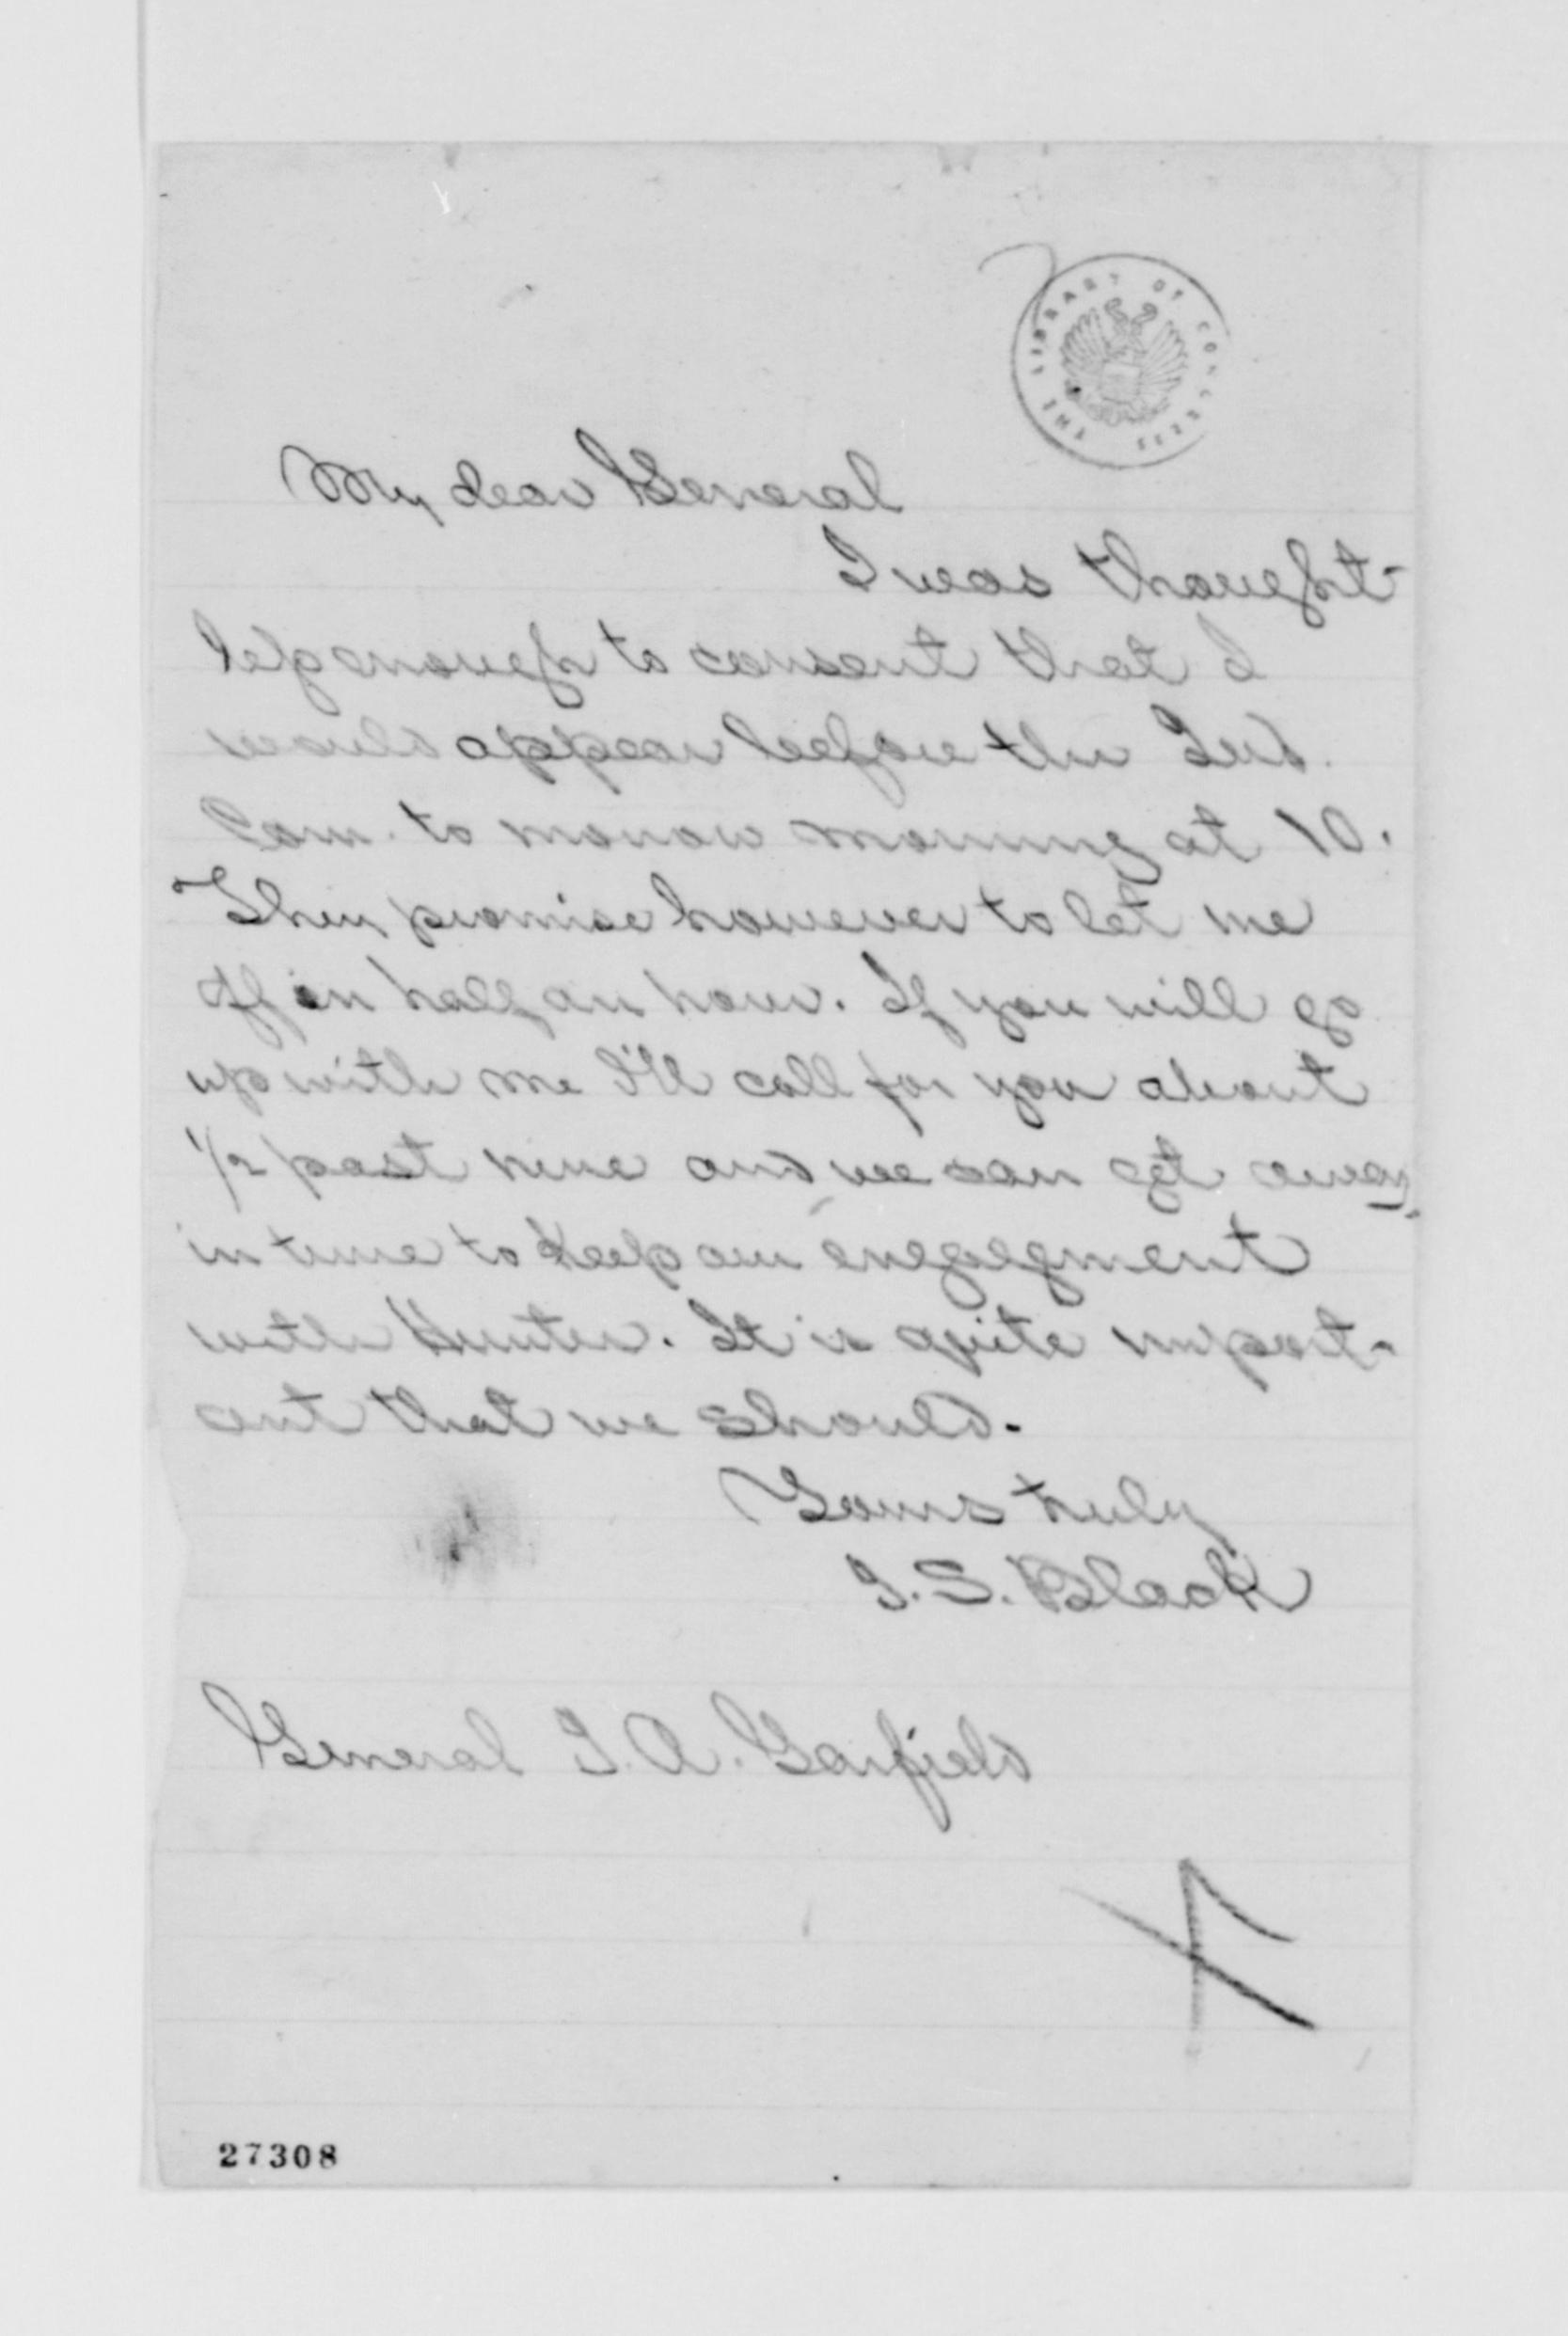 THE LIBRARY OF CONGRESS
My dear General
I was thought-
less enough to consent that I
would appear before the Jud.
Com. to morrow morning at 10.
They promise however to let me
off in half an hour. If you will go
up with me I'll call for you about
1/2 past nine and we can get away
in time to keep our engagement
with Hunter. It is quite import-
ant that we should.
Yours truly
J. S. Black
General J. A. Garfield
27308